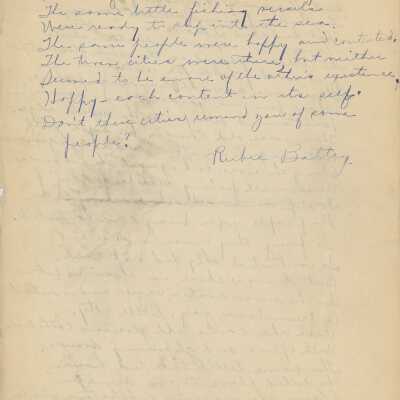 The same little fishing vessels
Were ready to slip into the sea.
The same people were happy and contented.
The twin cities were there, but neither
Seemed to be aware of the other's existence,
Happy - each content in its self.
Don't these cities remind you of some
people?
Rubie Battey